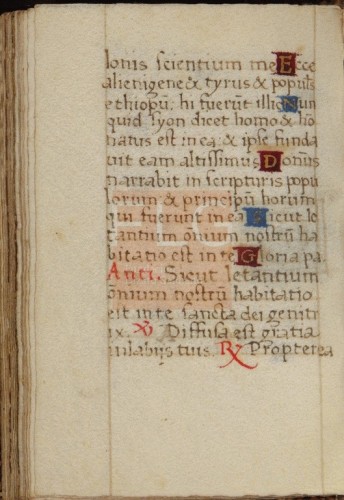 lonis scientium me Ecce
alienigene & tyrus & popul's
ethiopū: hi fuerūt illic Nun
quid syon dicet homo & ho
natus est in ea: & ipse funda
uit eam altissimus Domīs
narrabit in scripturis popu
lorum & principū horum
qui fuerunt in ea Sicut le
tantium ōnium nostrū ha
bitatio est in te Gloria pa.
Anti. Sicut letantium
ōnium nostrū habitatio
est in te sancta dei genitri
ix. Diffusa est gratia
in labijs tuis. Propterea